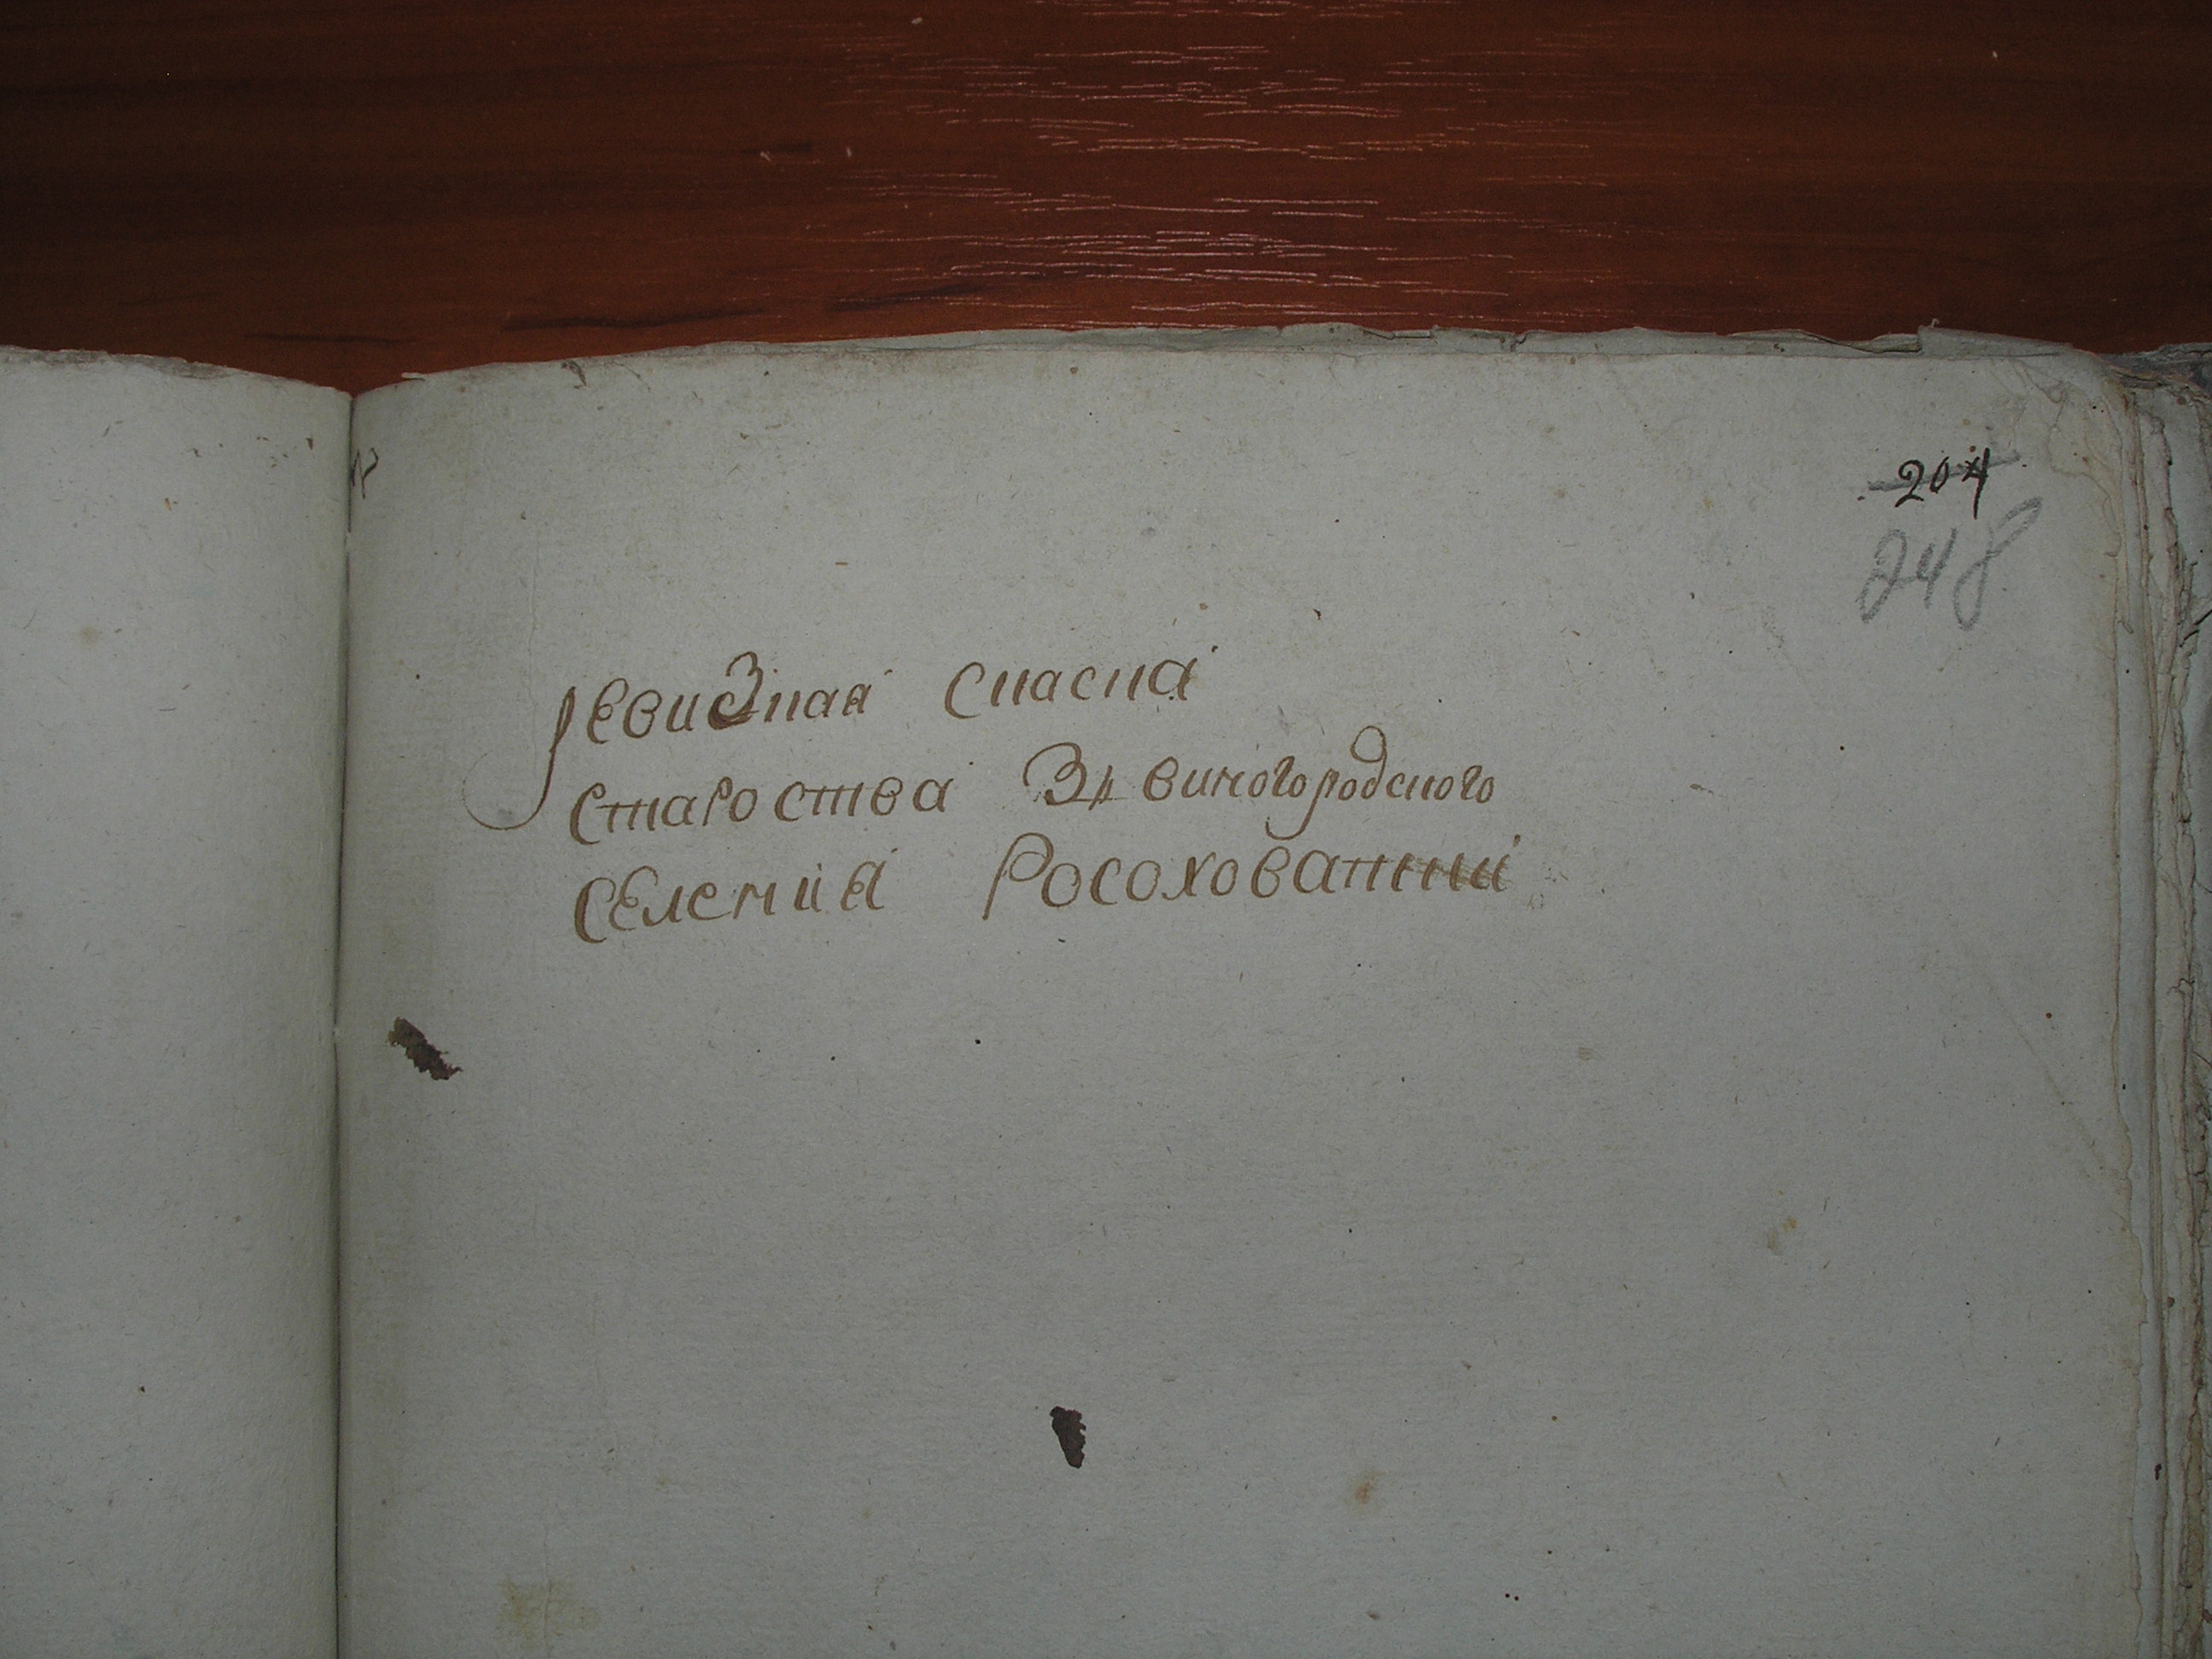 204
248
Ревизная Сказка
староства Звиногородского
селения Росоховатки